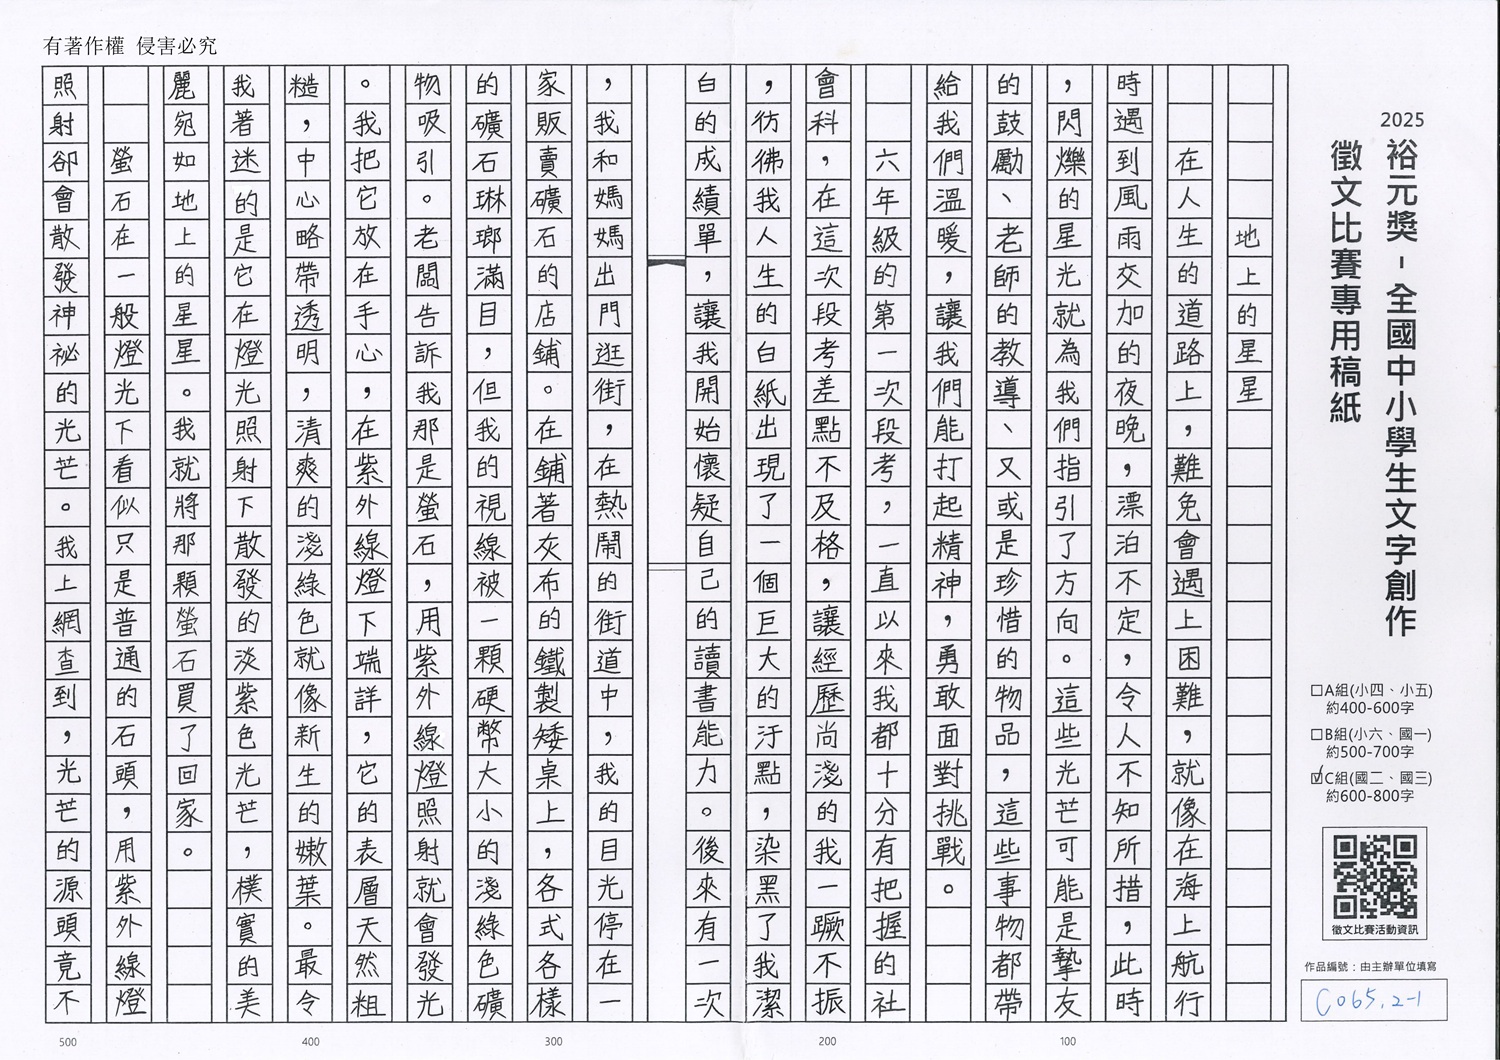 有著作權 侵害必究
2025
裕元獎-全國中小學生文字創作
徵文比賽專用稿紙
□A組(小四、小五)
約400-600字
□B組(小六、國一)
約500-700字
☑C組(國二、國三)
約600-800字
徵文比賽活動資訊
作品編號：由主辦單位填寫
C065.2-1
地上的星星
在人生的道路上，難免會遇上困難，就像在海上航行
時遇到風雨交加的夜晚，漂泊不定，令人不知所措，此時
，閃爍的星光就為我們指引了方向。這些光芒可能是摯友
的鼓勵、老師的教導、又或是珍惜的物品，這些事物都帶
給我們溫暖，讓我們能打起精神，勇敢面對挑戰。
六年級的第一次段考，一直以來我都十分有把握的社
會科，在這次段考差點不及格，讓經歷尚淺的我一蹶不振
，彷彿我人生的白紙出現了一個巨大的汙點，染黑了我潔
白的成績單，讓我開始懷疑自己的讀書能力。後來有一次
，我和媽媽出門逛街，在熱鬧的街道中，我的目光停在一
家販賣礦石的店鋪。在鋪著灰布的鐵製矮桌上，各式各樣
的礦石琳瑯滿目，但我的視線被一顆硬幣大小的淺綠色礦
物吸引。老闆告訴我那是螢石，用紫外線燈照射就會發光
。我把它放在手心，在紫外線燈下端詳，它的表層天然粗
糙，中心略帶透明，清爽的淺綠色就像新生的嫩葉。最令
我著迷的是它在燈光照射下散發的淡紫色光芒，樸實的美
麗宛如地上的星星。我就將那顆螢石買了回家。
螢石在一般燈光下看似只是普通的石頭，用紫外線燈
照射卻會散發神祕的光芒。我上網查到，光芒的源頭竟不
100
200
300
400
500